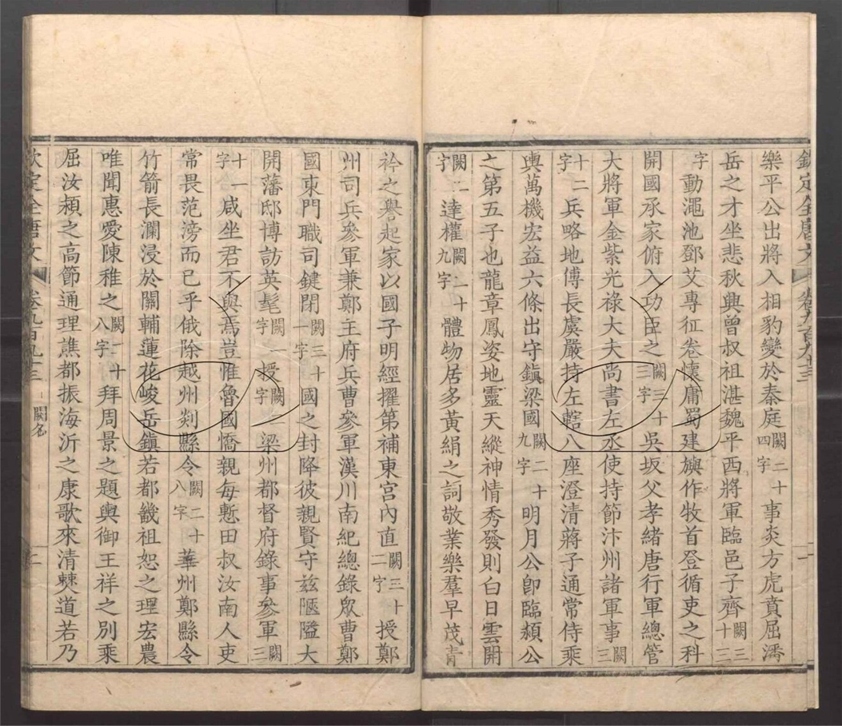 欽定全唐文 卷九百九十三 二
樂平公出將入相豹變於秦庭闕二十四字事炎方虎賁屈潘
岳之才坐悲秋興曾叔祖湛魏平西將軍臨邑子齊闕三十三
字動澠池鄧艾專征卷懷庸蜀建旟作牧首登循吏之科
開國承家俯入功臣之闕三十三字吳坂父孝緒唐行軍總管
大將軍金紫光祿大夫尚書左丞使持節汴州諸軍事闕三
十二字兵略地傅長虞嚴持左轄八座澄清蔣子通常侍乘
輿萬機宏益六條出守鎮梁國闕二十九字明月公卽臨潁公
之第五子也龍章鳳姿地靈天縱神情秀發則白日雲開
闕二字達權闕二十九字體物居多黃絹之詞敬業樂羣早茂青
衿之譽起家以國子明經擢第補東宮內直闕三十二字授鄭
州司兵參軍兼鄭王府兵曹參軍漢川南紀總錄眾曹鄭
國東門職司鍵閉闕三十一字國之封降彼親賢守玆陿隘大
開藩邸博訪英髦闕一字授闕一字梁州都督府錄事參軍闕三
十一字咸坐君不與焉豈惟魯國憍親每慙田叔汝南人吏
常畏范滂而已乎俄除越州剡縣令闕二十八字華州鄭縣令
竹箭長瀾浸於關輔蓮花峻岳鎮若都畿祖恕之理宏農
唯聞惠愛陳稚之闕一十八字拜周景之題輿御王祥之別乘
屈汝潁之高節通理譙都振海沂之康歌來清僰道若乃
欽定全唐文 卷九百九十三 闕名 二